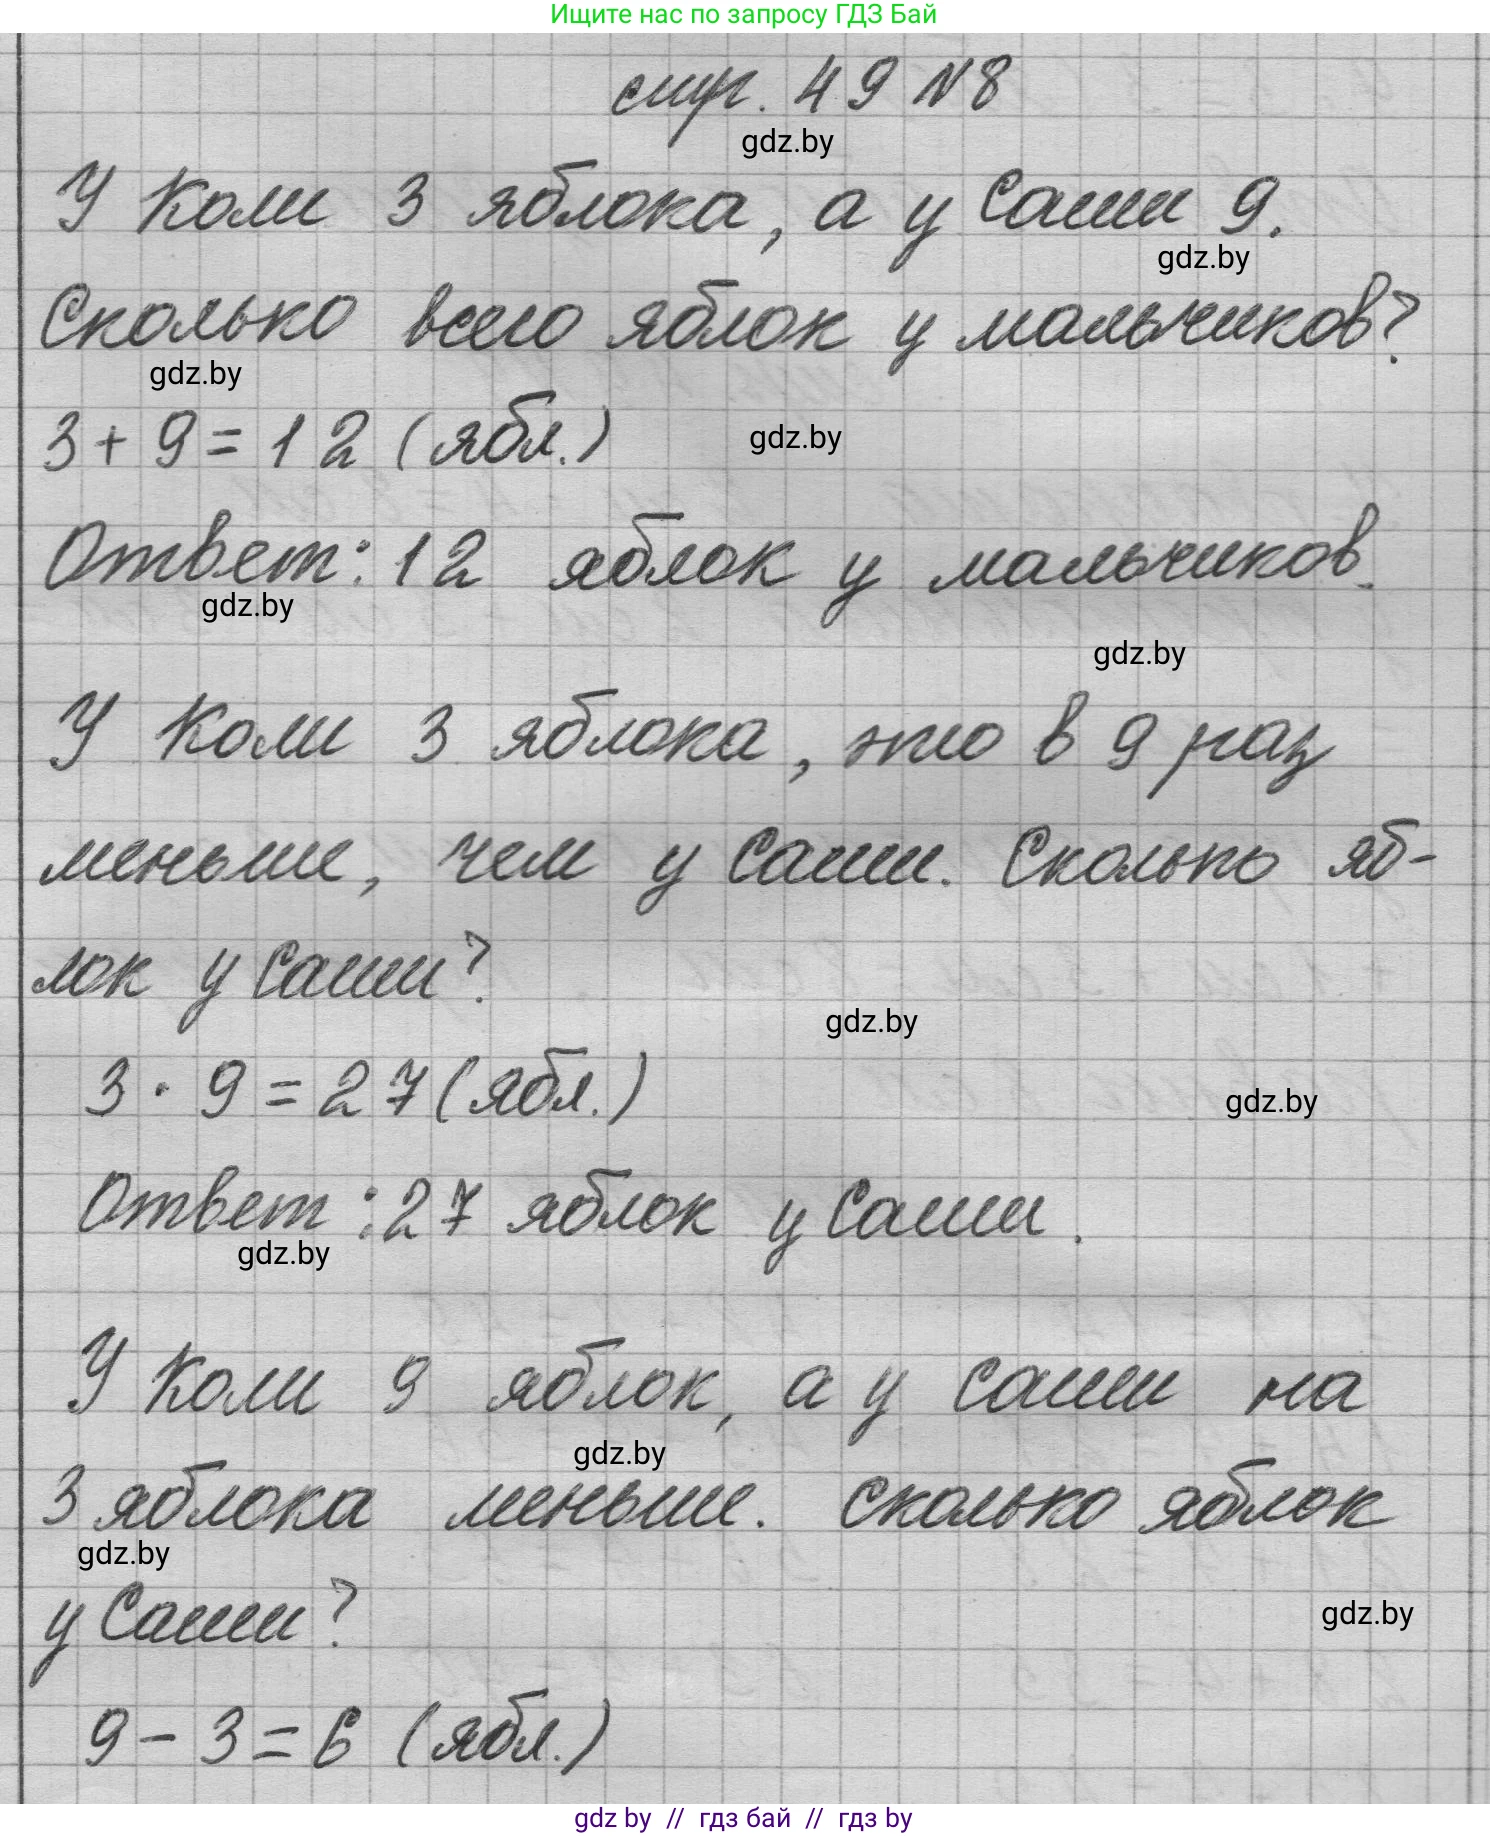 Ищите нас по запросу ГДЗ Бай
стр. 49 №8
gdz.by
У Коли 3 яблока, а у Саши 9.
gdz.by
Сколько всего яблок у мальчиков?
gdz.by
3 + 9 = 12 (ябл.)
gdz.by
Ответ: 12 яблок у мальчиков.
gdz.by
gdz.by
У Коли 3 яблока, это в 9 раз
меньше, чем у Саши. Сколько яб-
лок у Саши?
gdz.by
3 · 9 = 27 (ябл.)
gdz.by
Ответ: 27 яблок у Саши.
gdz.by
У Коли 9 яблок, а у Саши на
gdz.by
3 яблока меньше. Сколько яблок
gdz.by
у Саши?
gdz.by
9 - 3 = 6 (ябл.)
gdz by // гдз бай // гдз by